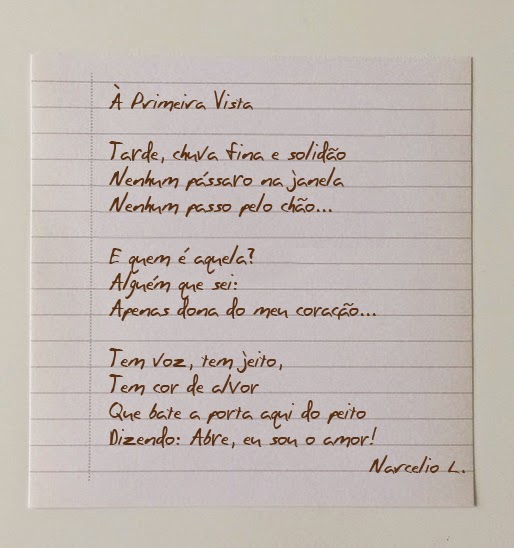 À Primeira Vista
Tarde, chuva fina e solidão
Nenhum pássaro na janela
Nenhum passo pelo chão...
E quem é aquela?
Alguém que sei:
Apenas dona do meu coração...
Tem voz, tem jeito,
Tem cor de alvor
Que bate a porta aqui do peito
Dizendo: Abre, eu sou o amor!
Narcelio L.